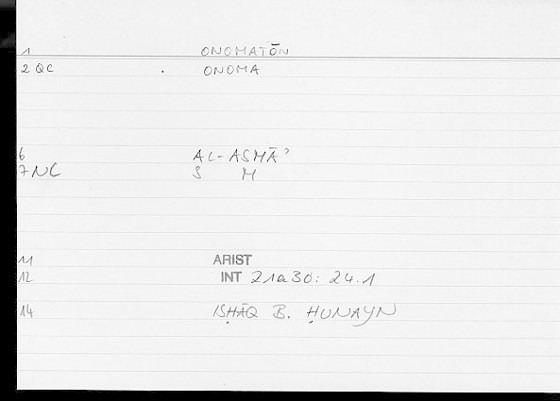 1 ONOMATŌN
2 QC . ONOMA
6 AL-ASMĀʾ
7 NC S M
11 ARIST
12 INT 21a30: 24.1
14 ISḤĀQ B. ḤUNAYN